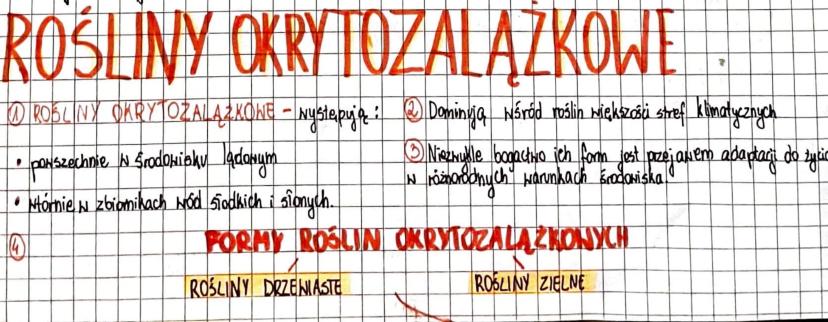 ROŚLINY OKRYTOZALĄŻKOWE
① ROŚLINY OKRYTOZALĄŻKOWE - występują:
• powszechnie w środowisku lądowym
• wtórnie w zbiornikach wód słodkich i słonych.
② Dominują wśród roślin większości stref klimatycznych
③ Niezwykłe bogactwo ich form jest przejawem adaptacji do życia
w różnorodnych warunkach środowiska.
④ FORMY ROŚLIN OKRYTOZALĄŻKOWYCH
ROŚLINY DRZEWIASTE
ROŚLINY ZIELNE